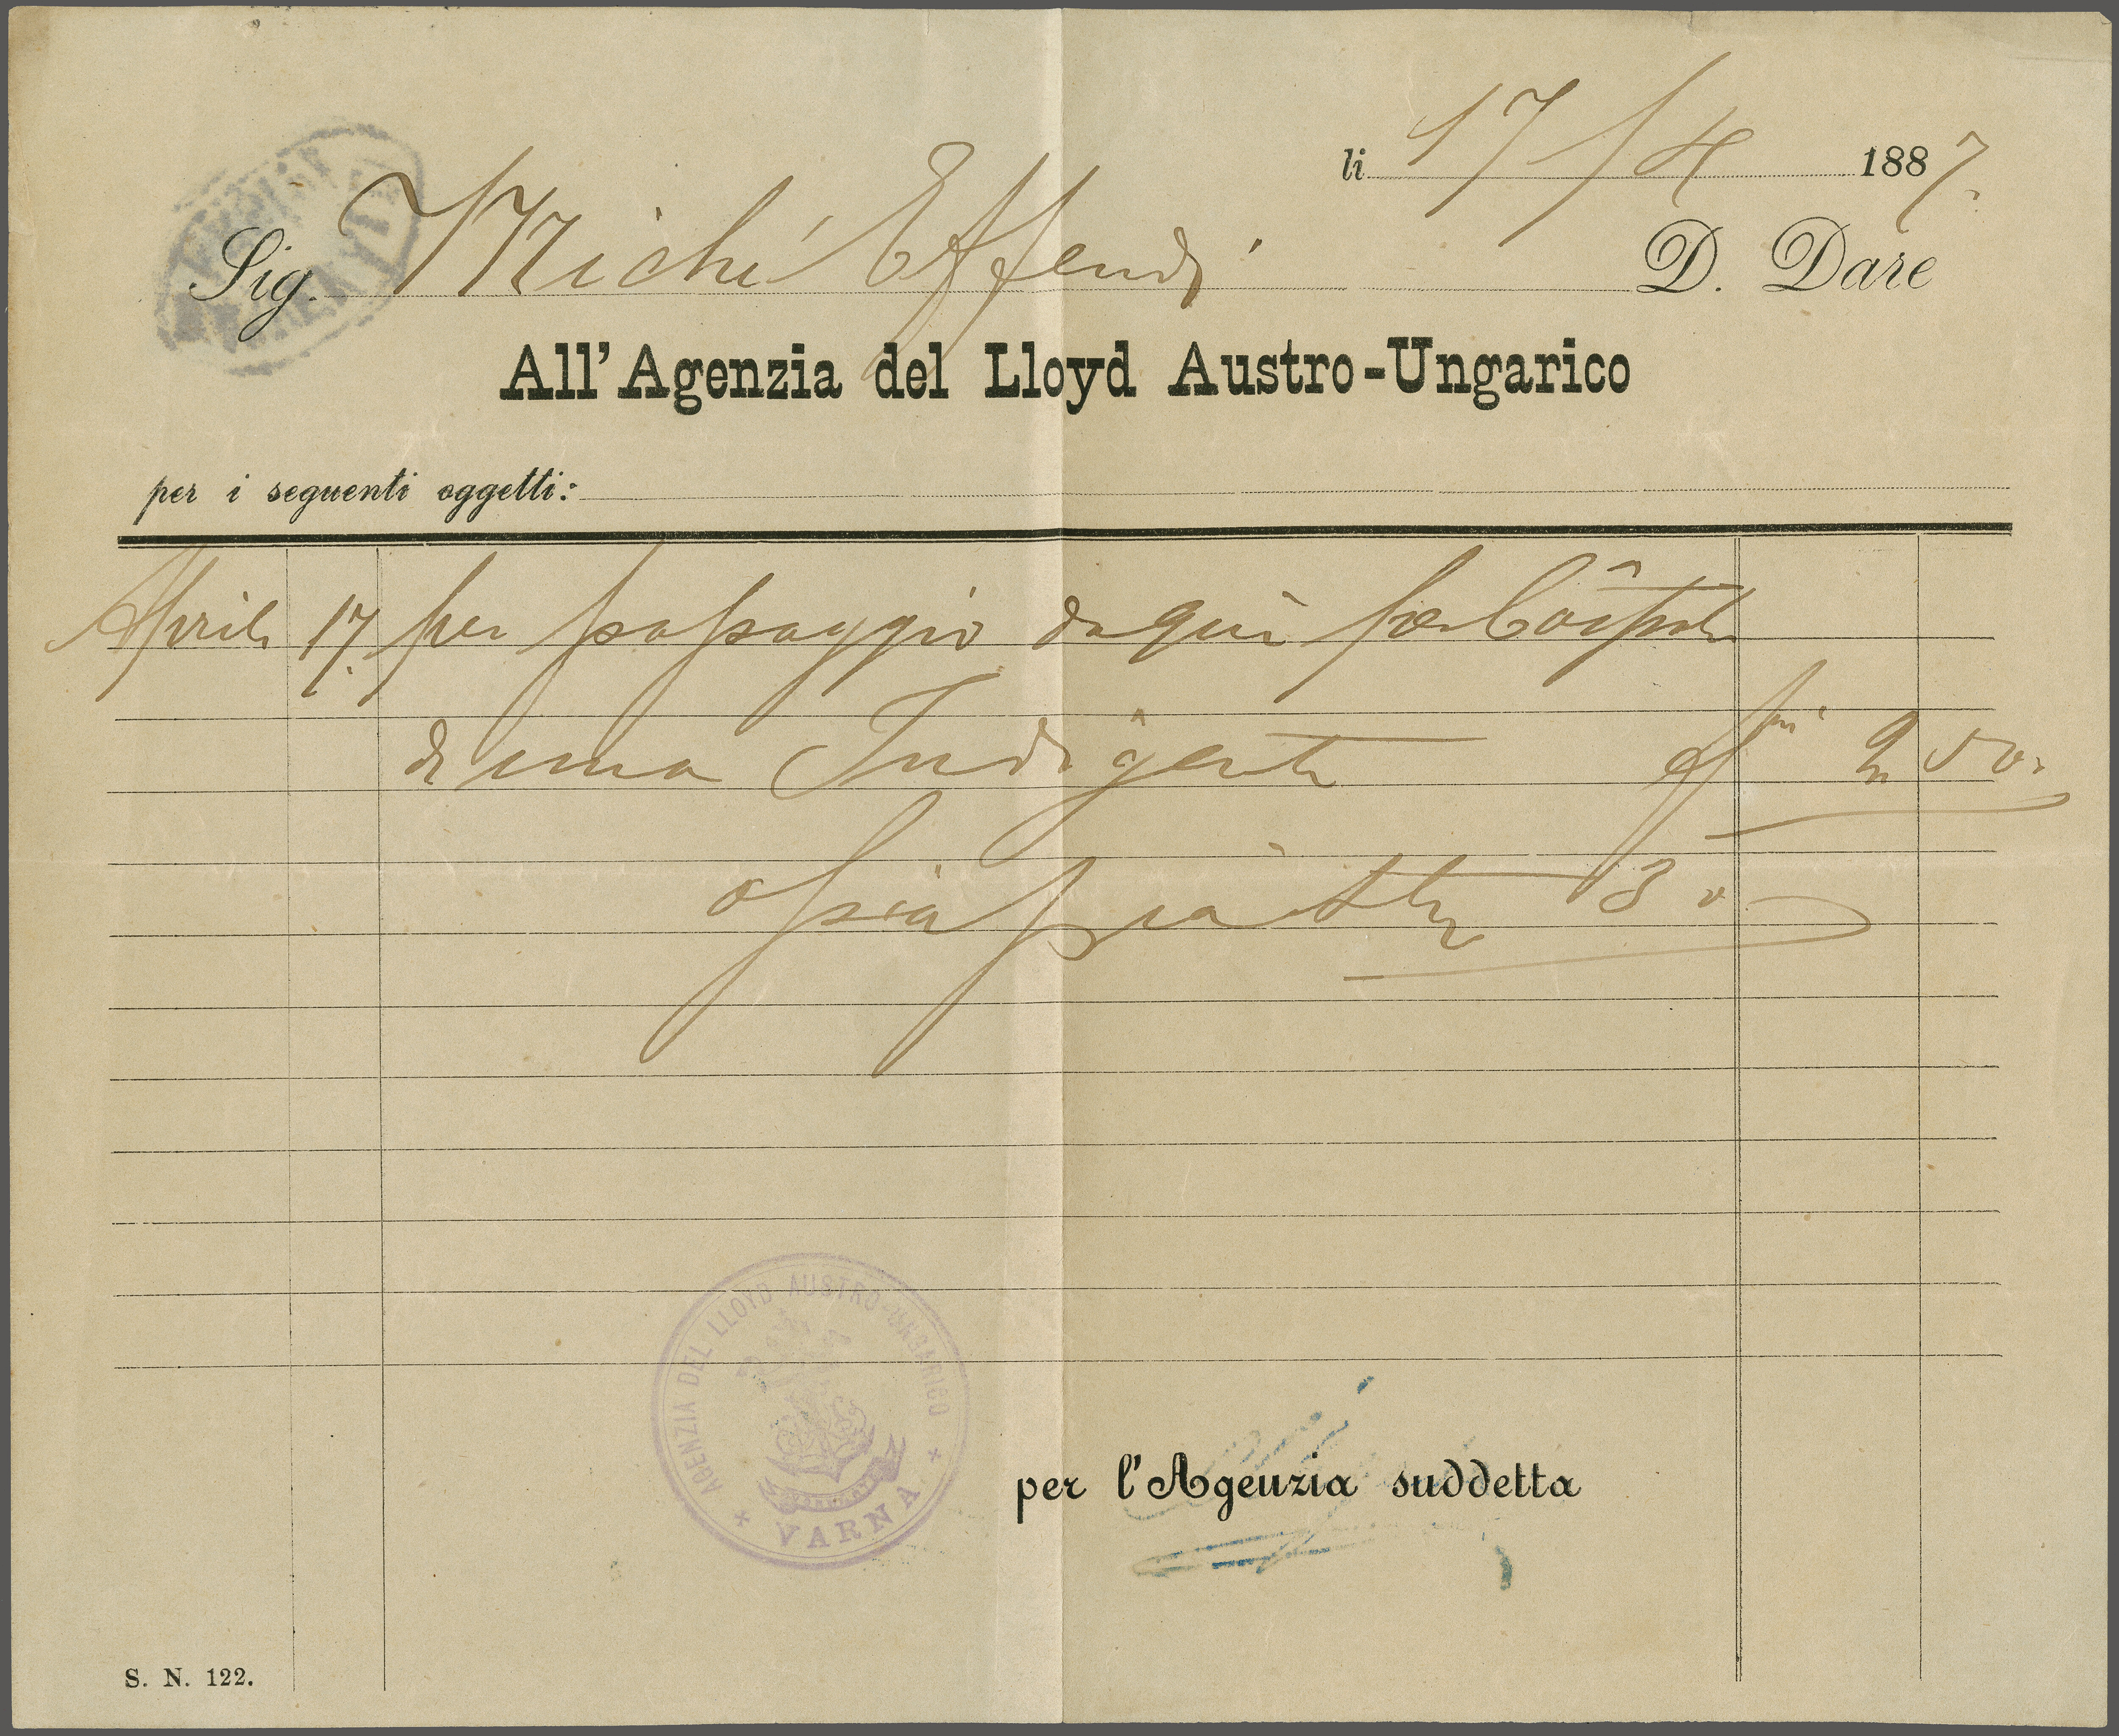 li 17/4 1887.
Sig. Michí Effendi D. Dare
All' Agenzia del Lloyd Austro-Ungarico
per i seguenti oggetti:
Aprile 17. per passaggio da qui per Côspoli
di una Indigente fni 2 50
ossia piastre 30
AGENZIA DEL LLOYD AUSTRO-UNGARICO
VARNA
per l'Agenzia suddetta
S. N. 122.